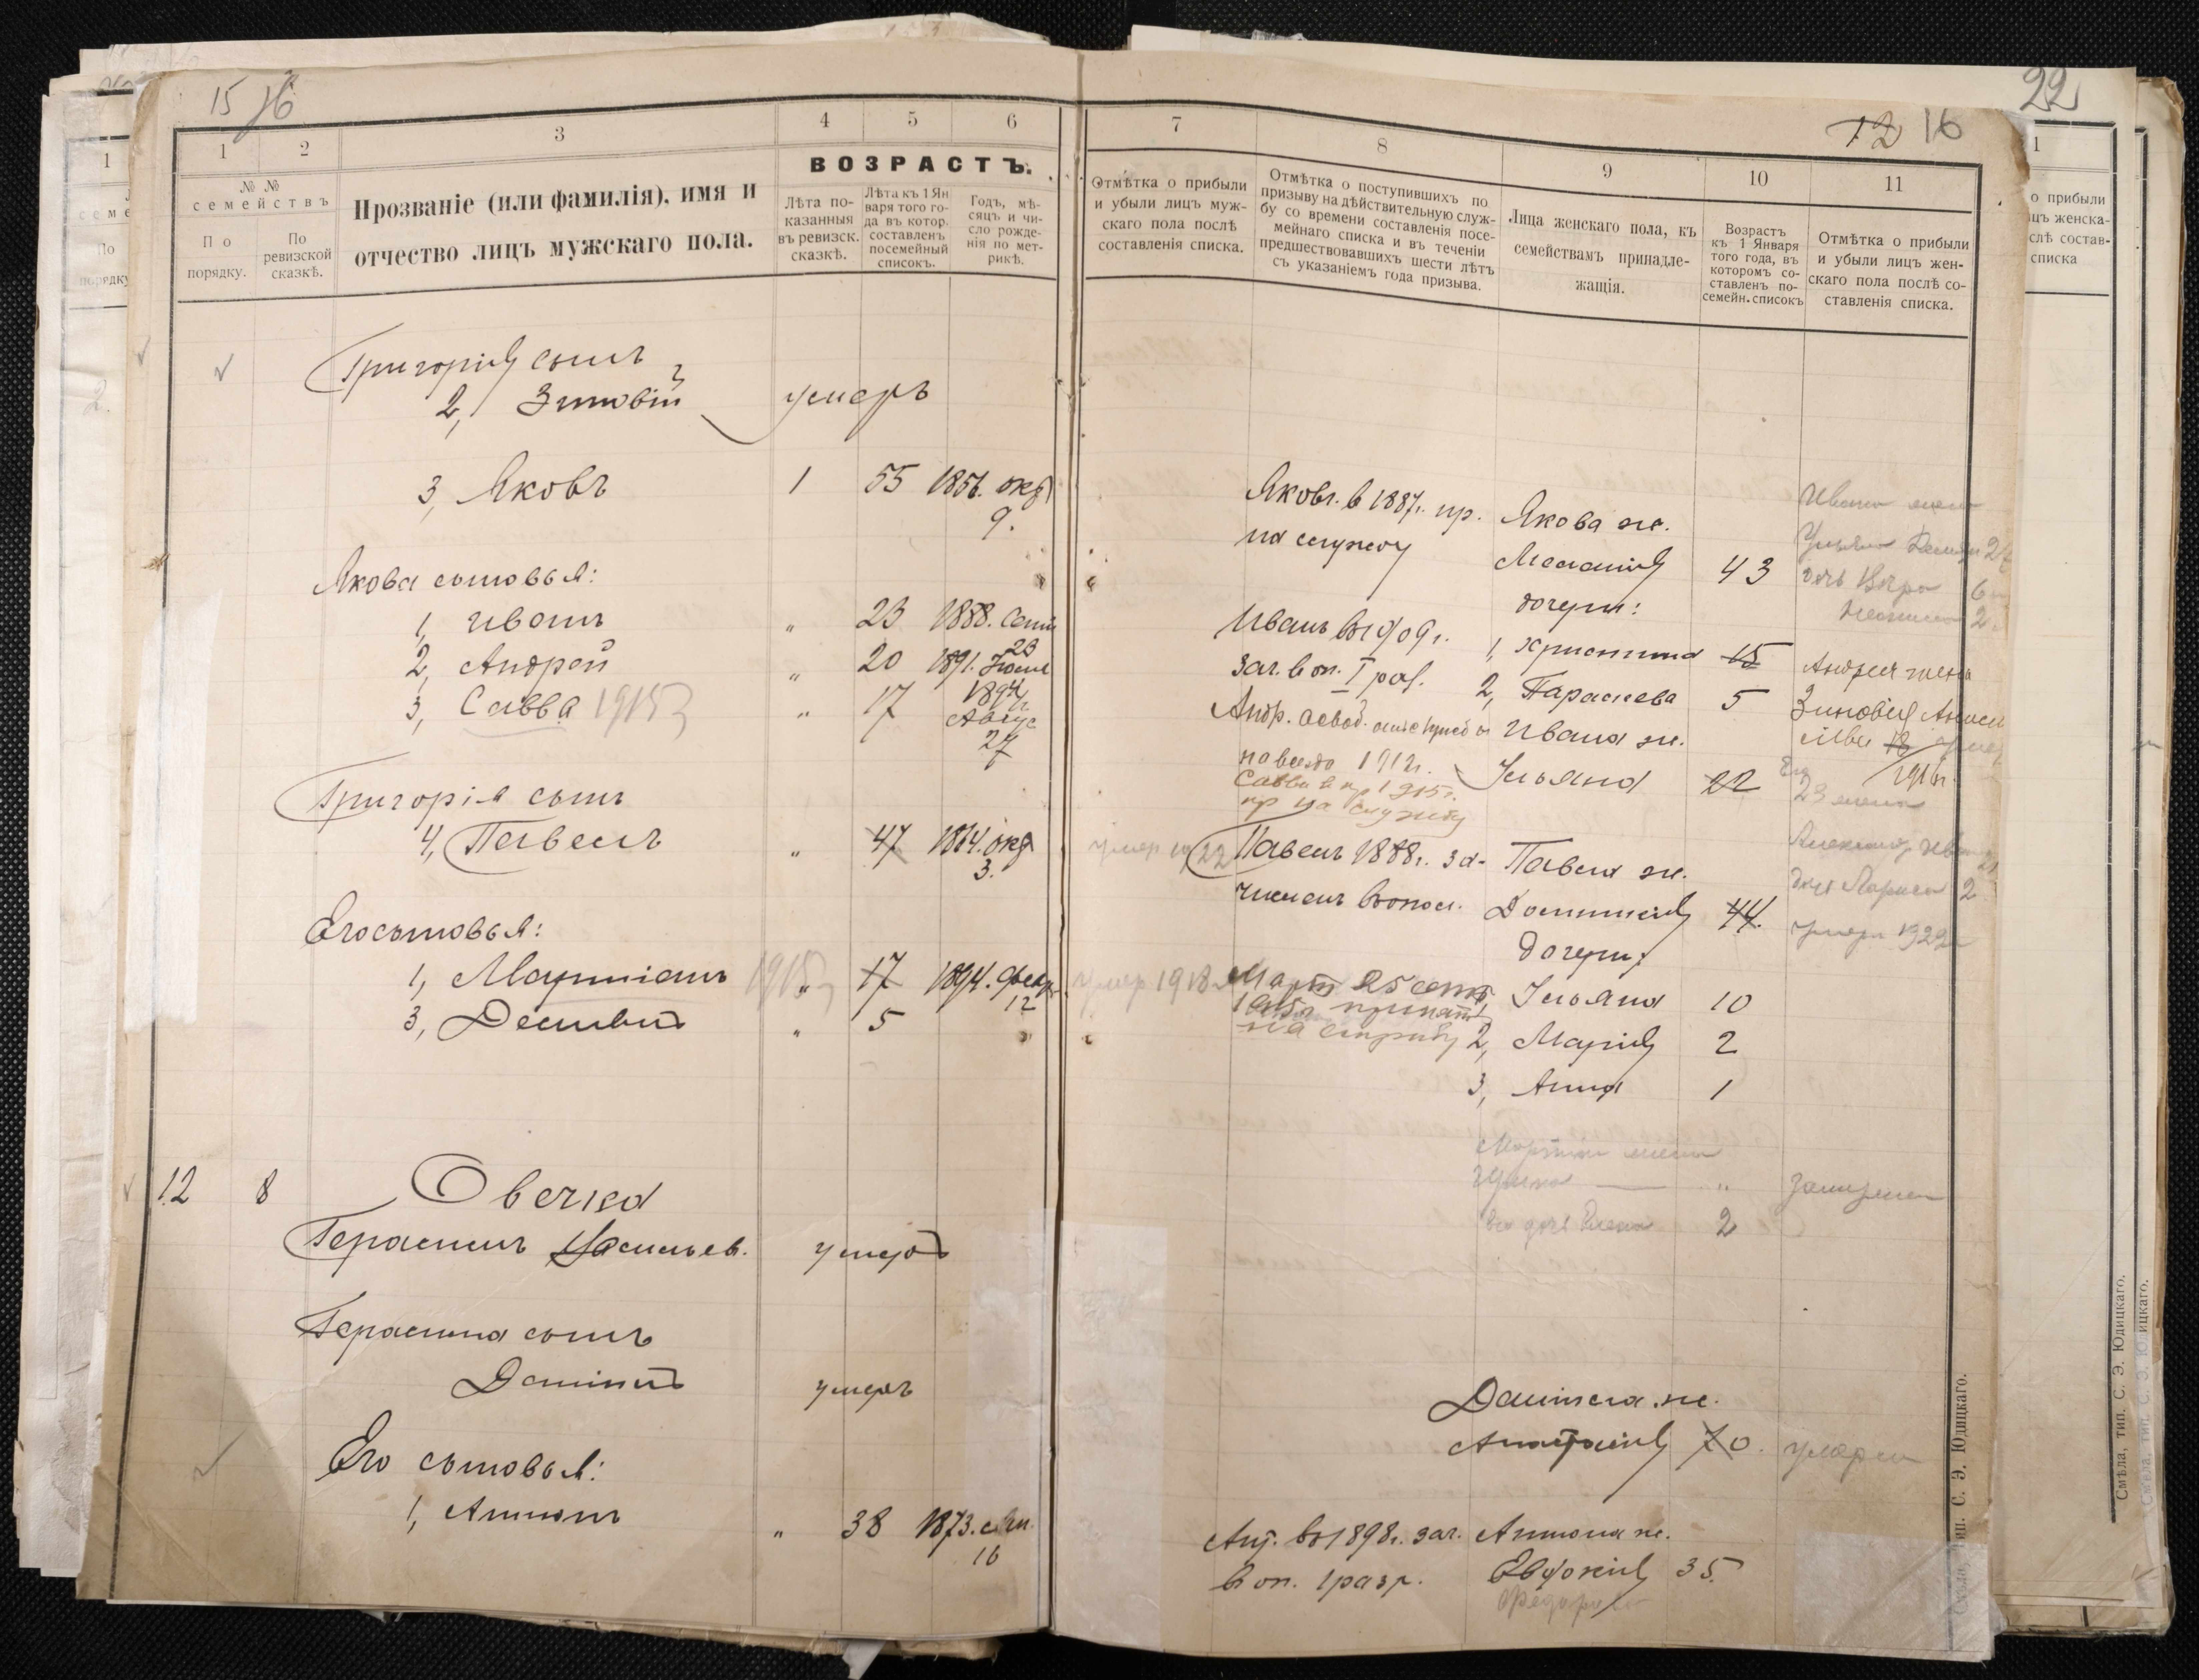 15 16
1
2
3
4
5
6
№ №
семействъ
По порядку.
По ревизской сказкѣ.
Прозваніе (или фамилія), имя и
отчество лицъ мужскаго пола.
ВОЗРАСТЪ.
Лѣта по-
казанныя
въ ревизск.
сказкѣ.
Лѣта къ 1 Ян
варя того го-
да въ котор.
составленъ
посемейный
списокъ.
Годъ, мѣ-
сяцъ и чи-
сло рожде-
нія по мет-
рикѣ.
Григорія сынъ
2, Зиновій умеръ
3, Яковъ 1 55 1856. окт
9.
Якова сыновья:
1, Иванъ " 23 1888. Сент
23
2, Андрей " 20 1891. Іюля
3, Савва 1915 " 17 1894 г.
Авгус
27
Григорія сынъ
4, Павелъ " 47 1864. окт
3.
Его сыновья:
1, Мартиніанъ 1915 " 17 1894. Февр.
12
3, Демьянъ " 5
12 8 Овечка
Герасимъ Васильев. умеръ
Герасима сынъ
Даніилъ умеръ
Его сыновья:
1, Антонъ " 38 1873. Сен.
16
22
12 16
7
8
9
10
11
Отмѣтка о прибыли
и убыли лицъ муж-
скаго пола послѣ
составленія списка.
Отмѣтка о поступившихъ по
призыву на дѣйствительную служ-
бу со времени составленія посе-
мейнаго списка и въ теченіи
предшествовавшихъ шести лѣтъ
съ указаніемъ года призыва.
Лица женскаго пола, къ
семействамъ принадле-
жащія.
Возрастъ
къ 1 Января
того года, въ
которомъ со-
ставленъ по-
семейн. списокъ
Отмѣтка о прибыли
и убыли лицъ жен-
скаго пола послѣ со-
ставленія списка.
Яков. в 1887 г. пр.
на службу
Якова ж.
Меланія 43
дочери:
1, Христина 15
2, Параскева 5
Ивана жена
дочь Вѣра 6
Иванъ въ 1909 г.
зач. в оп. I раз.
Андр. освоб. от службы
навсегда 1912 г.
Савва в пр 1915 г.
пр на службу
Ивана ж.
Ульяна 22
Андрея жена
Зиновія
18
1916 г.
23
умер 1922 Павелъ 1888 г. за-
численъ в опол.
Павла ж.
Домникія 44.
дочь Лариса 2
умерла 1922
дочери:
умер. 1918 Март. 25 сент
1915 г. принят
на службу
1, Ульяна 10
2, Марія 2
3, Анна 1
жена
дочь Елена 2
Даніила ж.
Анастасія 70. умерла
Ант. въ 1898 г. зач.
в оп. 1 разр.
Антона ж.
Евдокія 35.
Федоров
1
о прибыли
списка
Смѣла, тип. С. Э. Юдицкаго.
Смѣла, тип. С. Э. Юдицкаго.
Смѣла, тип. С. Э. Юдицкаго.